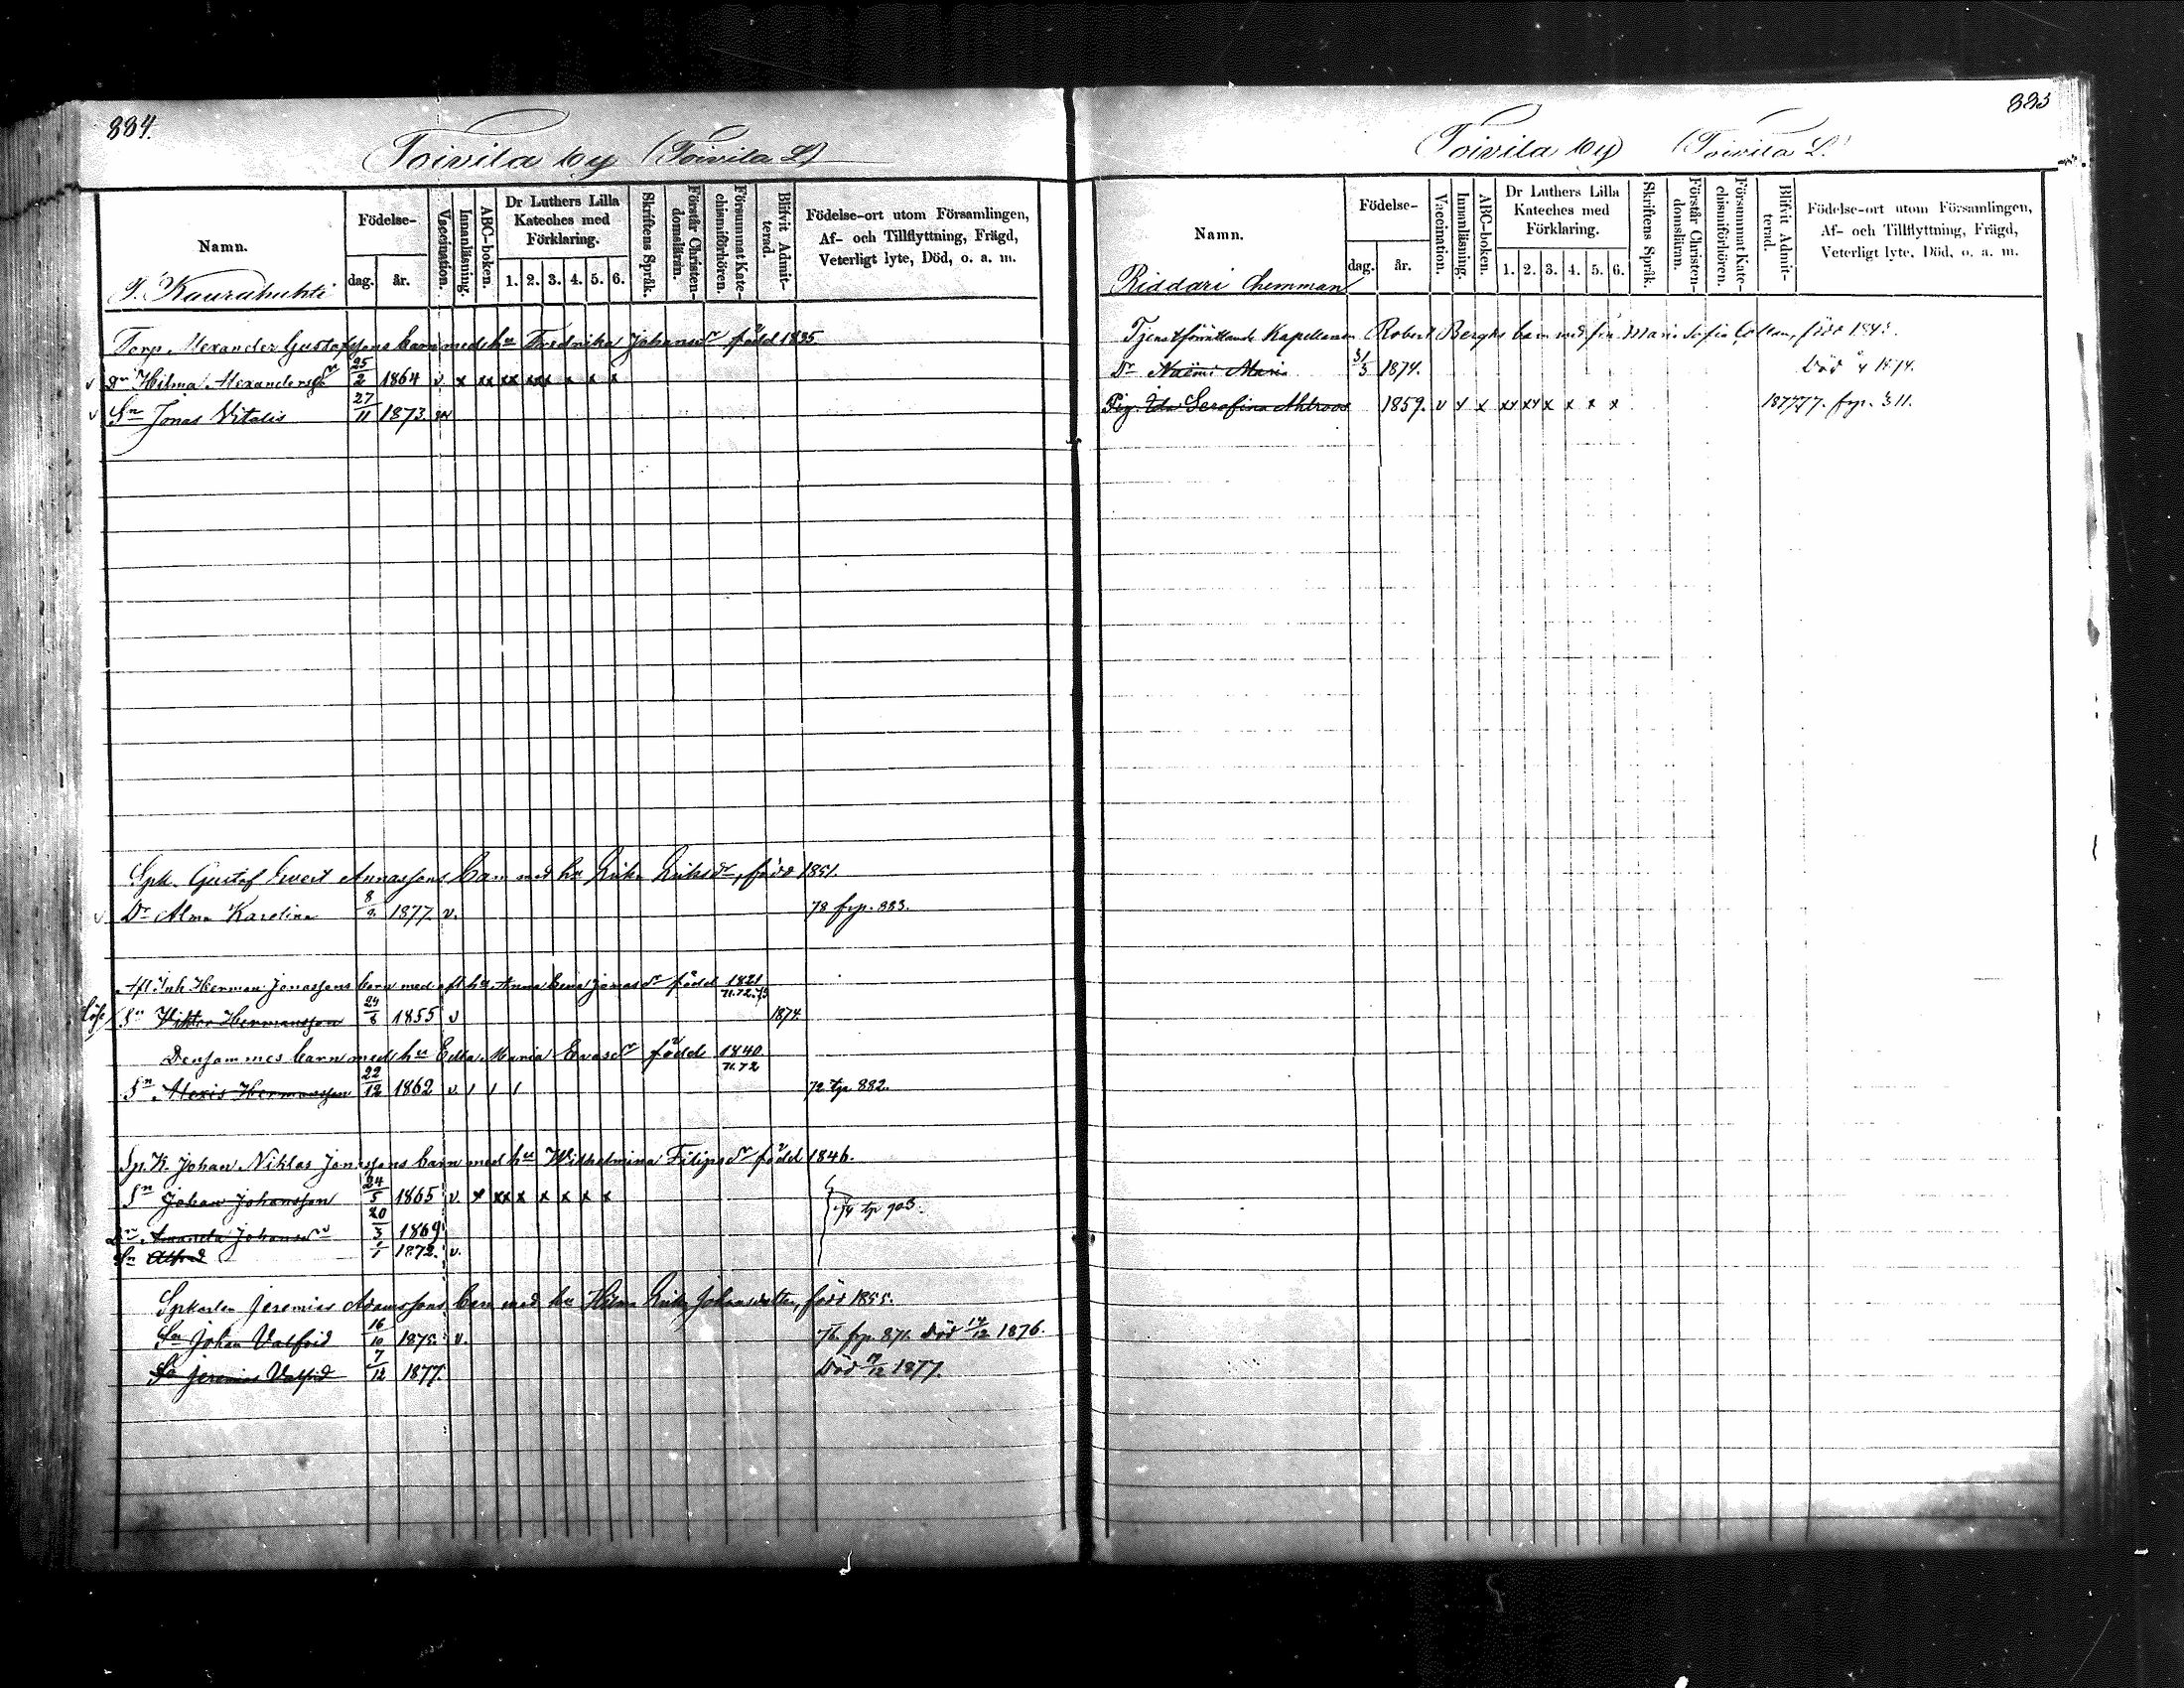 884.
Toivila by (Toivila L)
Namn.
Födelse-
dag. år.
Vaccination.
Innanläsning.
ABC-boken.
Dr Luthers Lilla Kateches med Förklaring.
1. 2. 3. 4. 5. 6.
Skriftens Språk.
Förstår Christendomsläran.
Försummat Katechismiförhören.
Blifvit Admitterad.
Födelse-ort utom Församlingen, Af- och Tillflyttning, Frägd, Veterligt lyte, Död, o. a. m.
T. Kaurahuhti
Torp. Alexander Gustafssons barn med hu Fredrika Johansdr född 1835
v Dr Hilma Alexandersdr 25/2 1864 v x xx xx xxx x x x
v Sn Jonas Vitalis 27/11 1873
Spk. Gustaf Evert Annassons barn med hu född 1851.
v Dr Alma Karolina 8/2 1877 v. 78 frp. 883.
Afl. Inh Herman Jonassons barn med afl hu Anna Lena Jonasdr född 1821
71.72.73
Sn Viktor Hermansson 24/8 1855 v 1874
Densammes barn med hu Edla Maria Evasdr född 1840
71.72
Sn Alexis Hermansson 22/12 1862 v / / / 72 tp 882.
Sp. K. Johan Niklas Jonassons barn med hu Wilhelmina Filipsdr född 1846.
Sn Johan Johansson 24/5 1865 v x xx x x x x x
74 tp 903.
Dr Amanda Johansdr 20/3 1869
Sn Alfred 1/1 1872. v.
Spkarlen Jeremias Adamssons barn med hu Hilma Johansdotter, född 1855.
Sn Johan Valfrid 16/10 1875. v. 76 frp. 871. Död 14/12 1876.
Sn Jeremias Valfrid 7/12 1877. Död 17/12 1877.
885
Toivila by (Toivila L.)
Namn.
Födelse-
dag. år.
Vaccination.
Innanläsning.
ABC-boken.
Dr Luthers Lilla Kateches med Förklaring.
1. 2. 3. 4. 5. 6.
Skriftens Språk.
Förstår Christendomsläran.
Försummat Katechismiförhören.
Blifvit Admitterad.
Födelse-ort utom Församlingen, Af- och Tillflyttning, Frägd, Veterligt lyte, Död, o. a. m.
Riddari hemman
Tjenstförrättande Kapellanen Robert Berghs barn med fru Maria Sofia Collan, född 184
Dr Naëmi Maria 31/3 1874. Död 1874.
Pig. Ida Serafina Ahlroos 1859. v x x xx xx x x x x 1877 77. frp. 311.